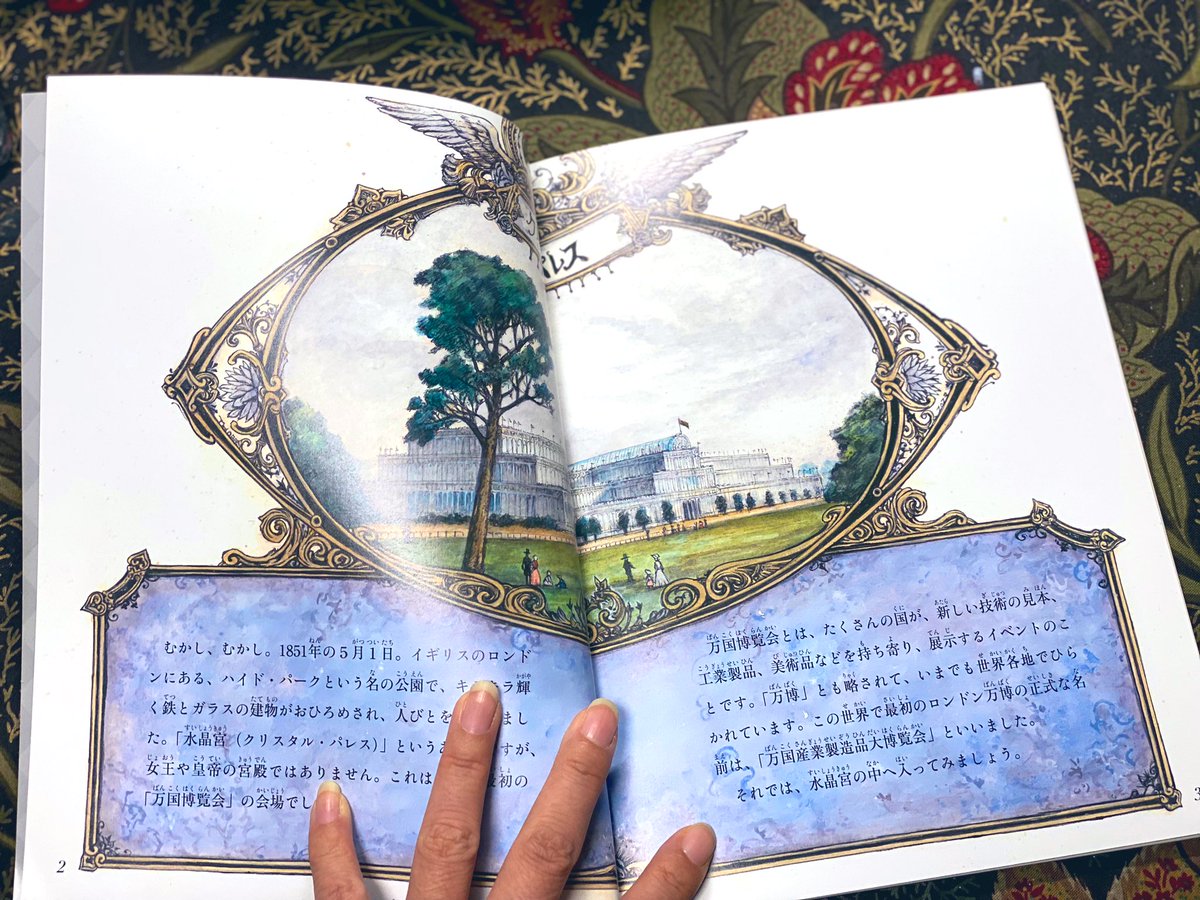 レス
むかし、むかし。1851年の5月1日。イギリスのロンド
ンにある、ハイド・パークという名の公園で、キ ラ輝
く鉄とガラスの建物がおひろめされ、人びとを まし
た。「水晶宮（クリスタル・パレス）」という すが、
女王や皇帝の宮殿ではありません。これは 最初の
「万国博覧会」の会場でし
2
万国博覧会とは、たくさんの国が、新しい技術の見本、
工業製品、美術品などを持ち寄り、展示するイベントのこ
とです。「万博」とも略されて、いまでも世界各地でひら
かれています。この世界で最初のロンドン万博の正式な名
前は、「万国産業製造品大博覧会」といいました。
それでは、水晶宮の中へ入ってみましょう。
3